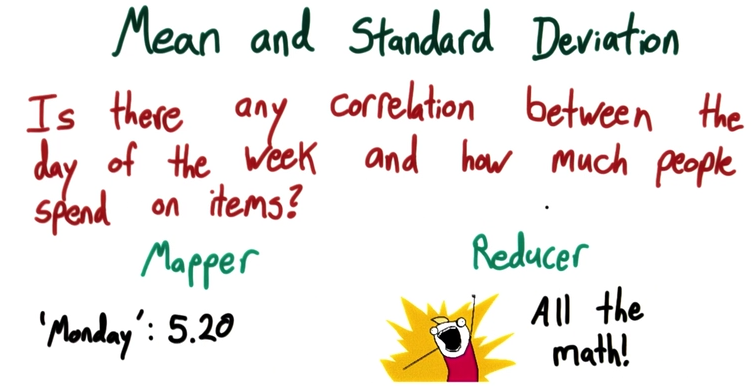 Mean and Standard Deviation
Is there any correlation between the
day of the week and how much people
spend on items?
Mapper
Reducer
'Monday': 5.20
All the
math!